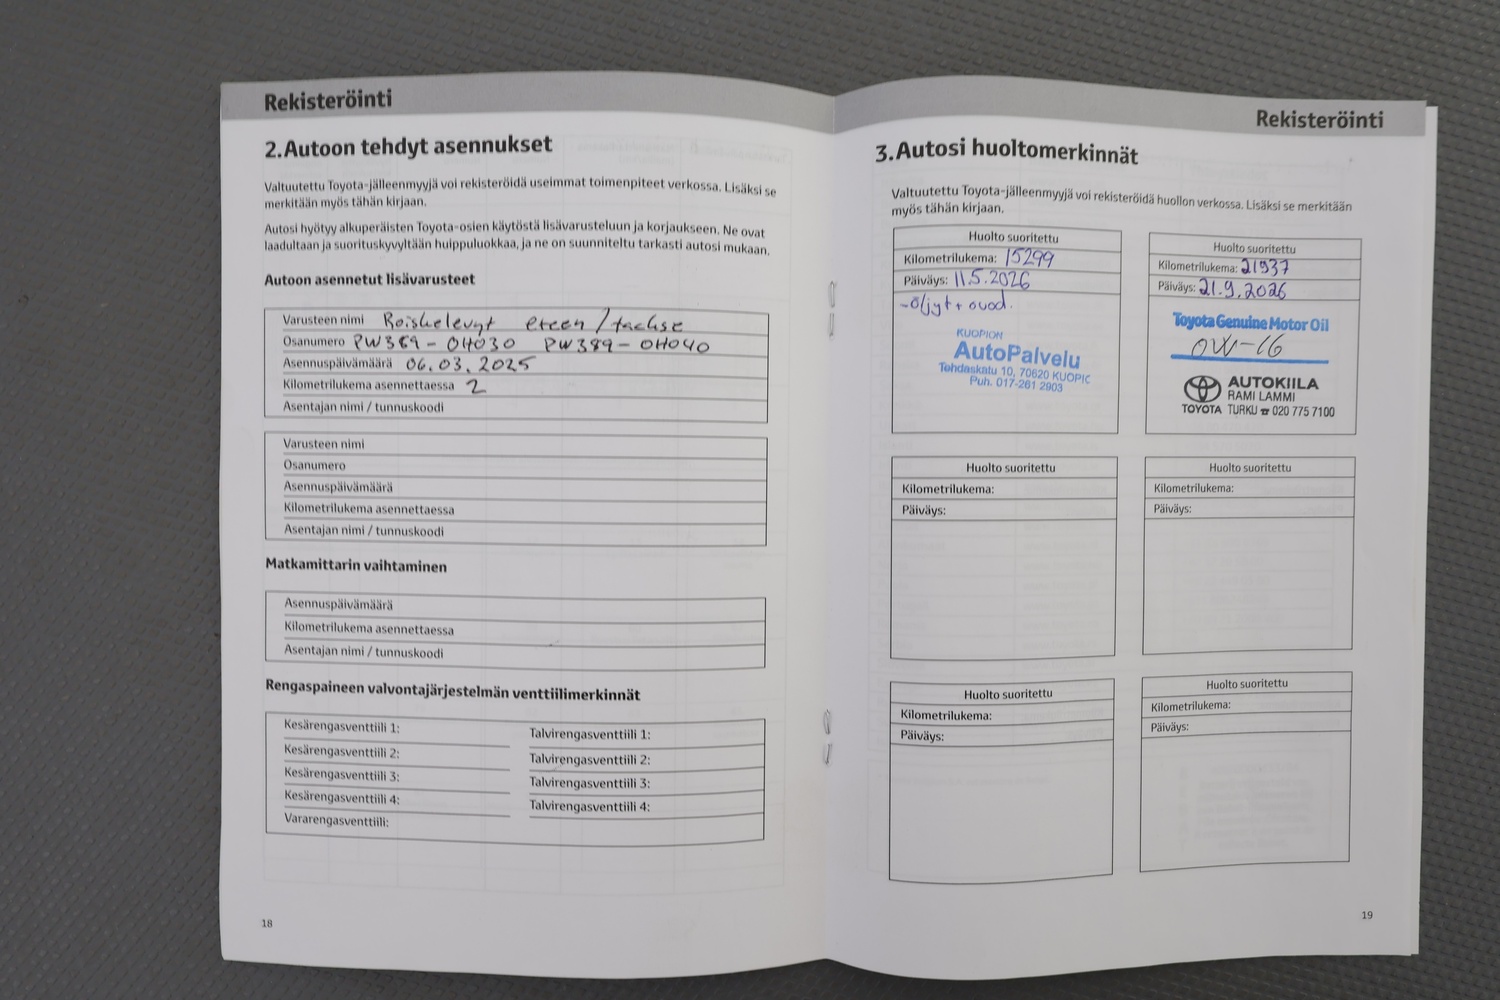 Rekisteröinti
2.Autoon tehdyt asennukset
Valtuutettu Toyota-jälleenmyyjä voi rekisteröidä useimmat toimenpiteet verkossa. Lisäksi se
merkitään myös tähän kirjaan.
Autosi hyötyy alkuperäisten Toyota-osien käytöstä lisävarusteluun ja korjaukseen. Ne ovat
laadultaan ja suorituskyvyltään huippuluokkaa, ja ne on suunniteltu tarkasti autosi mukaan.
Autoon asennetut lisävarusteet
Varusteen nimi Roiskelevyt eteen/taakse
Osanumero PW389-0H030 PW389-0H040
Asennuspäivämäärä 06.03.2025
Kilometrilukema asennettaessa 2
Asentajan nimi / tunnuskoodi
Varusteen nimi
Osanumero
Asennuspäivämäärä
Kilometrilukema asennettaessa
Asentajan nimi / tunnuskoodi
Matkamittarin vaihtaminen
Asennuspäivämäärä
Kilometrilukema asennettaessa
Asentajan nimi / tunnuskoodi
Rengaspaineen valvontajärjestelmän venttiilimerkinnät
Kesärengasventtiili 1:
Kesärengasventtiili 2:
Kesärengasventtiili 3:
Kesärengasventtiili 4:
Vararengasventtiili:
Talvirengasventtiili 1:
Talvirengasventtiili 2:
Talvirengasventtiili 3:
Talvirengasventtiili 4:
18
Rekisteröinti
3.Autosi huoltomerkinnät
Valtuutettu Toyota-jälleenmyyjä voi rekisteröidä huollon verkossa. Lisäksi se merkitään
myös tähän kirjaan.
Huolto suoritettu
Kilometrilukema: 15299
Päiväys: 11.5.2026
-öljyt + suod.
KUOPION
AutoPalvelu
Tehdaskatu 10, 70620 KUOPIO
Puh. 017-261 2903
Huolto suoritettu
Kilometrilukema: 21937
Päiväys: 21.9.2026
Toyota Genuine Motor Oil
0W-16
AUTOKIILA
RAMI LAMMI
TOYOTA TURKU ☎ 020 775 7100
Huolto suoritettu
Kilometrilukema:
Päiväys:
Huolto suoritettu
Kilometrilukema:
Päiväys:
Huolto suoritettu
Kilometrilukema:
Päiväys:
Huolto suoritettu
Kilometrilukema:
Päiväys:
19